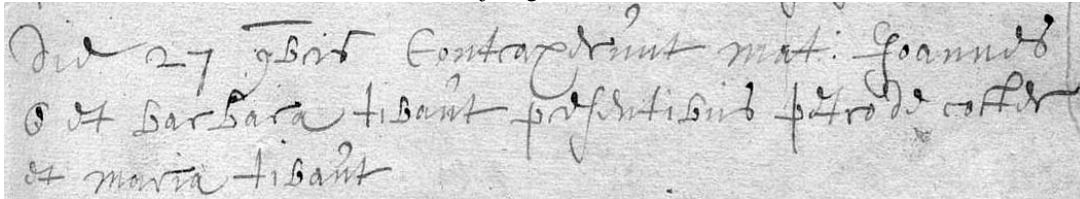 die 27 9bris Contraxerunt mat: Joannes
et barbara tibaut presentibus petro de cotter
et maria tibaut